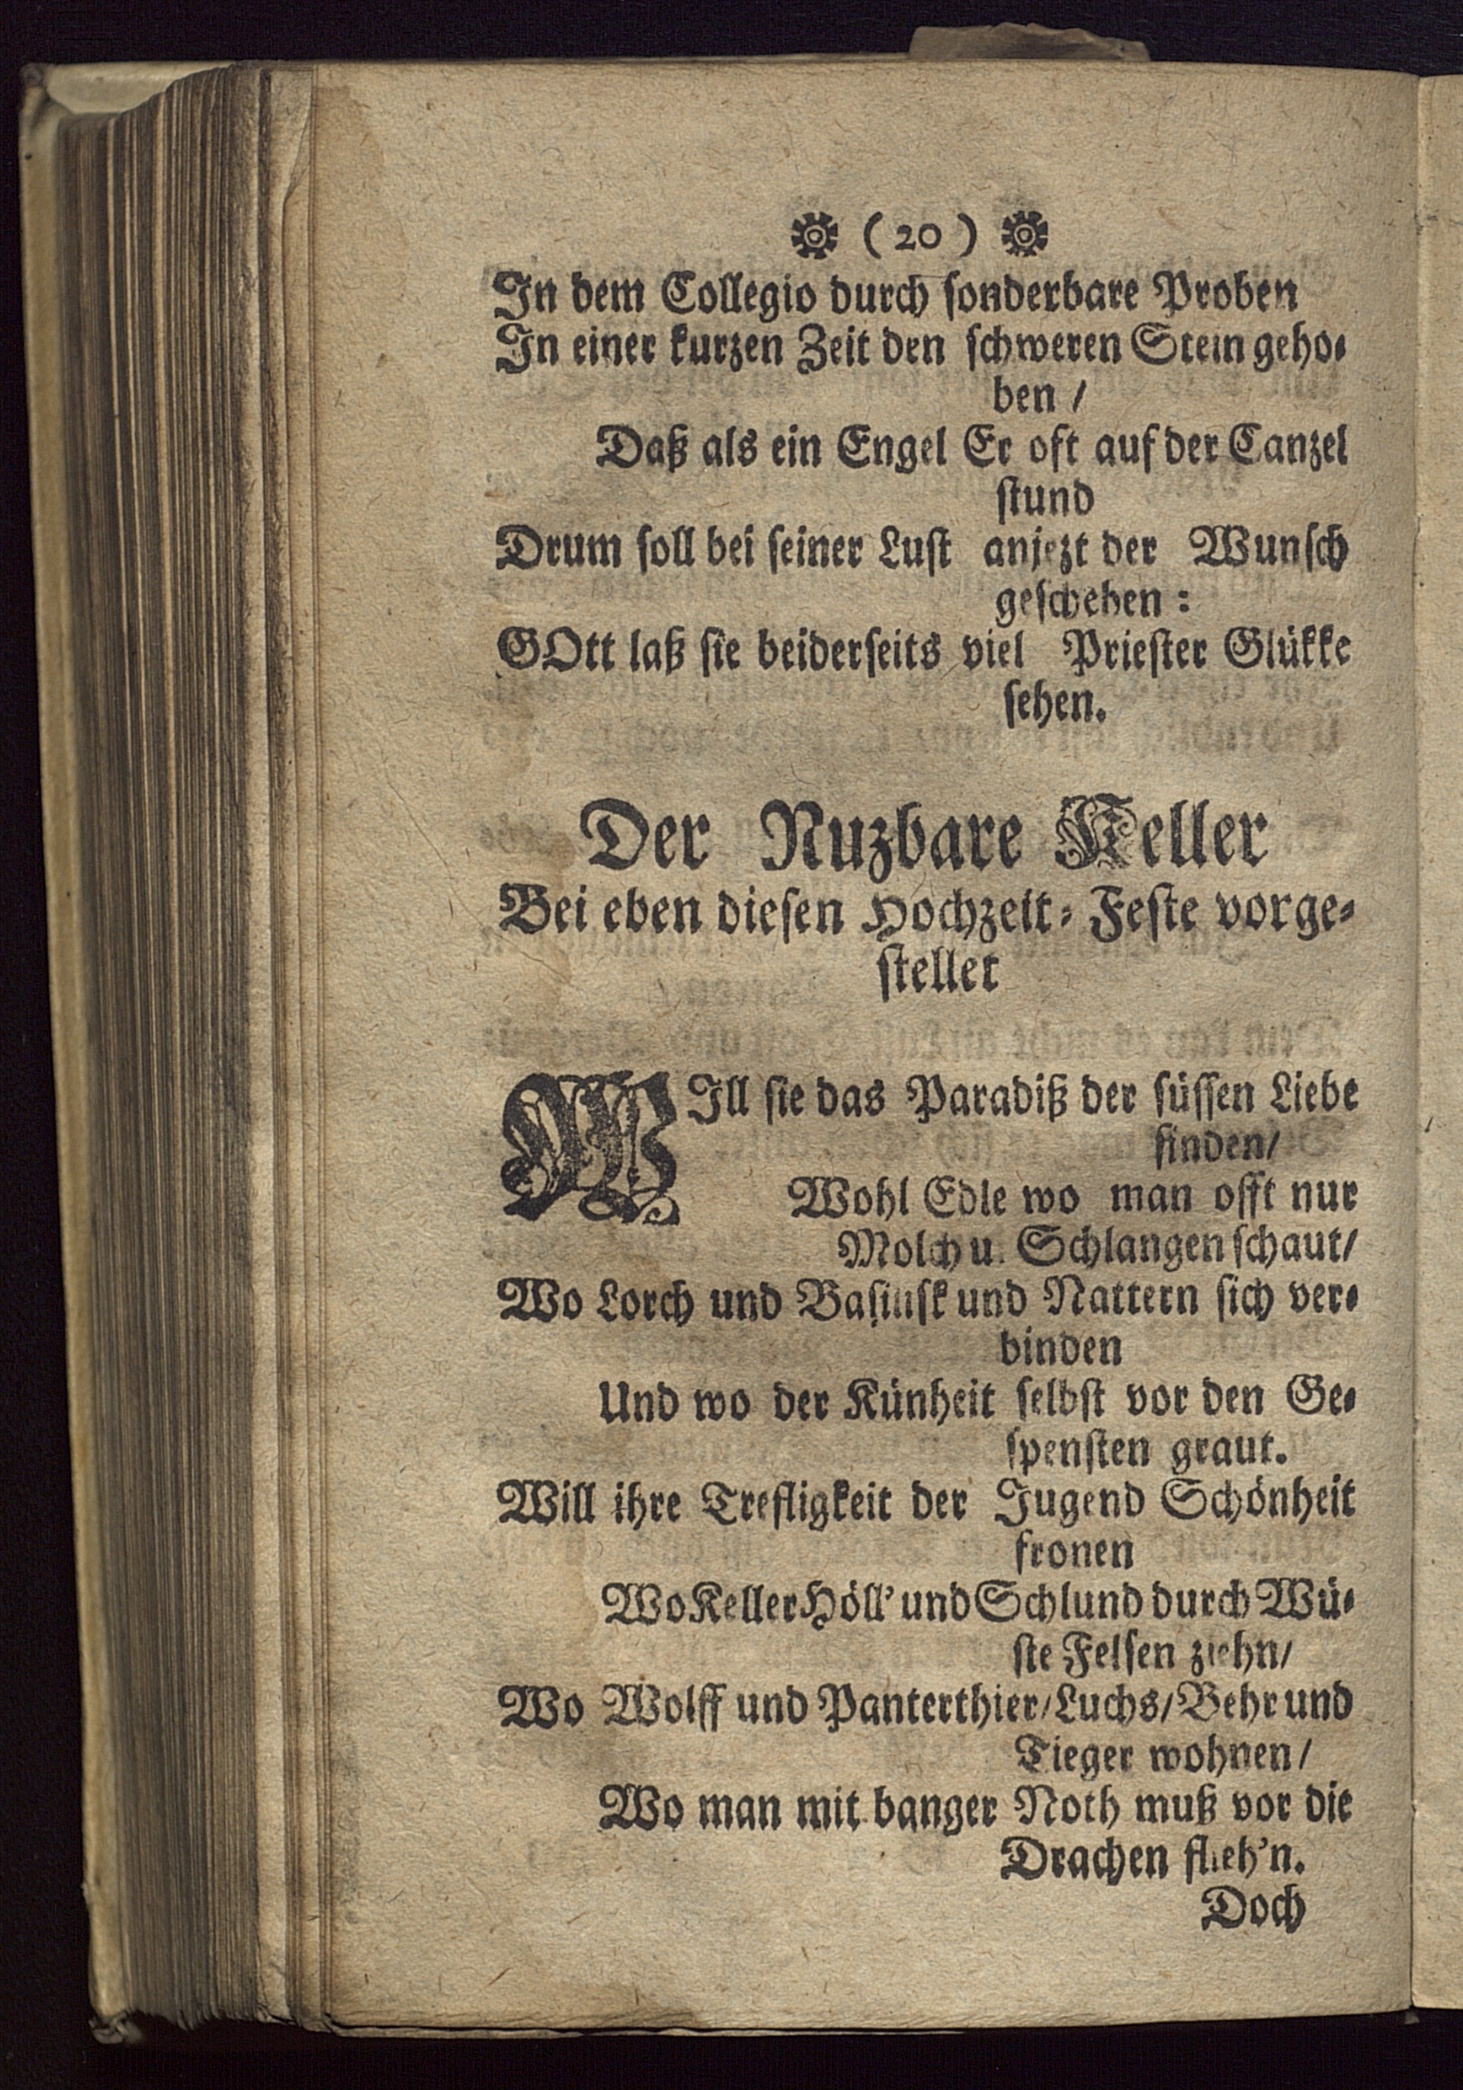 ( 20 )
In dem Collegio durch sonderbare Proben
In einer kurzen Zeit den schweren Stein geho-
ben /
Daß als ein Engel Er oft auf der Canzel
stund
Drum soll bei seiner Lust anjezt der Wunsch
geschehen :
GOtt laß sie beiderseits viel Priester Glükke
sehen.
Der Nuzbare Keller
Bei eben diesen Hochzeit-Feste vorge-
stellet
WIll sie das Paradiß der süssen Liebe
finden/
Wohl Edle wo man offt nur
Molch u. Schlangen schaut/
Wo Lorch und Basilisk und Nattern sich ver-
binden
Und wo der Künheit selbst vor den Ge-
spensten graut.
Will ihre Trefligkeit der Jugend Schönheit
fronen
Wo Keller Höll' und Schlund durch Wü-
ste Felsen ziehn/
Wo Wolff und Panterthier/Luchs/Behr und
Tieger wohnen/
Wo man mit banger Noth muß vor die
Drachen flieh'n.
Doch